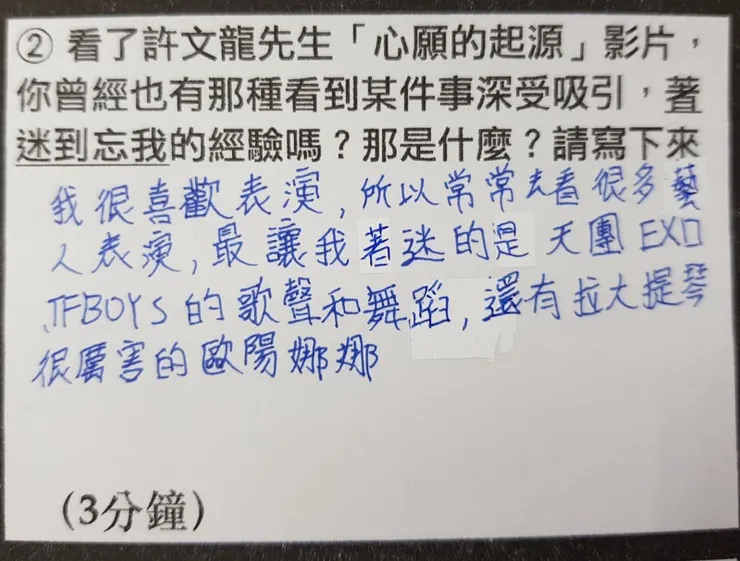 ② 看了許文龍先生「心願的起源」影片，
你曾經也有那種看到某件事深受吸引，著
迷到忘我的經驗嗎？那是什麼？請寫下來
我很喜歡表演，所以常常去看很多藝
人表演，最讓我著迷的是天團EXO
、TFBOYS的歌聲和舞蹈，還有拉大提琴
很厲害的歐陽娜娜
（3分鐘）